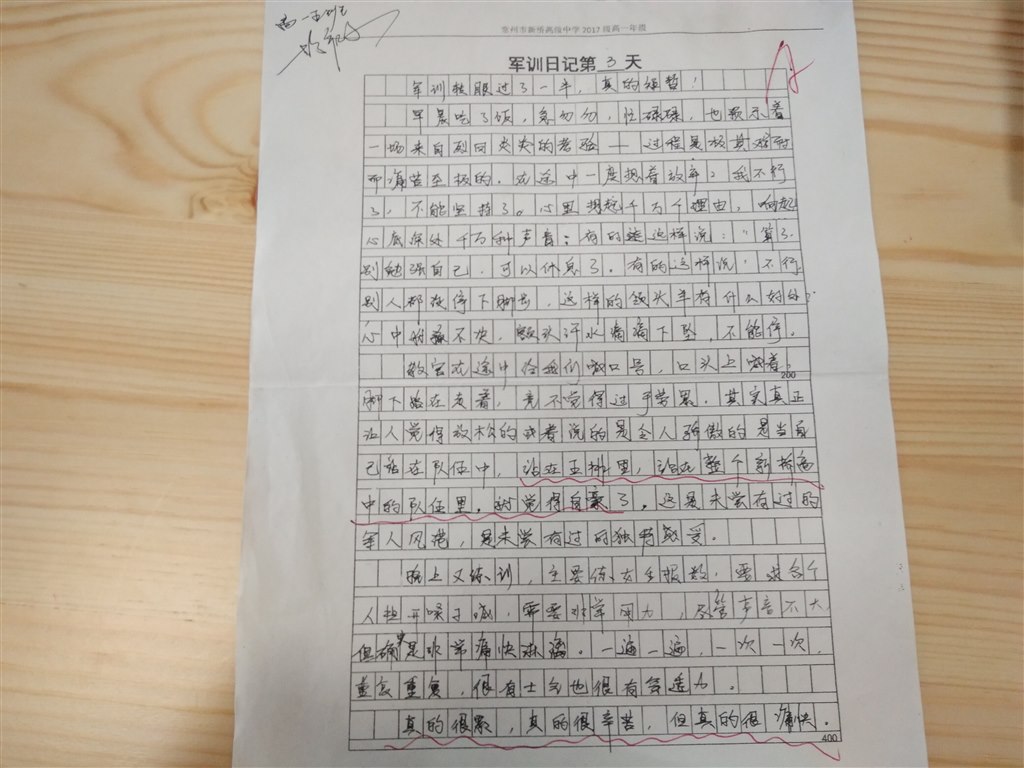 常州市新桥高级中学2017级高一年级
高一五班
军训日记第 3 天
军训熬眼过了一半,真的短暂!
早晨吃了饭,急匆匆,忙碌碌,也预示着
一场来自烈日炎炎的考验——过程是极其难耐
而痛苦至极的。在途中一度想着放弃:我不行
了,不能坚持了。心里想起千万个理由,响起
心底深处千万种声音:有的这样说:"算了.
别勉强自己.可以休息了.有的这样说:不行.
别人都没停下脚步,这样的领头羊有什么好处
心中不决,额头汗水滴滴下坠,不能停.
教官在途中给我们喊口号,口头上喊着.
200
脚下踏在走着,竟不觉得过于劳累。其实真正
让人觉得放松的或者说的是令人骄傲的是当自
己站在队伍中,站在五排里,站在整个新桥高
中的队伍里,就觉得自豪了。这是未尝有过的
军人风范,是未尝有过的独特感受。
晚上又练训,主要练女生报数,要求各个
人扯开嗓子喊,需要非常用力,尽管声音不大
但确实是非常痛快淋漓。一遍一遍,一次一次,
重复重复,很有士气也很有合适力。
真的很累,真的很辛苦,但真的很痛快.
400